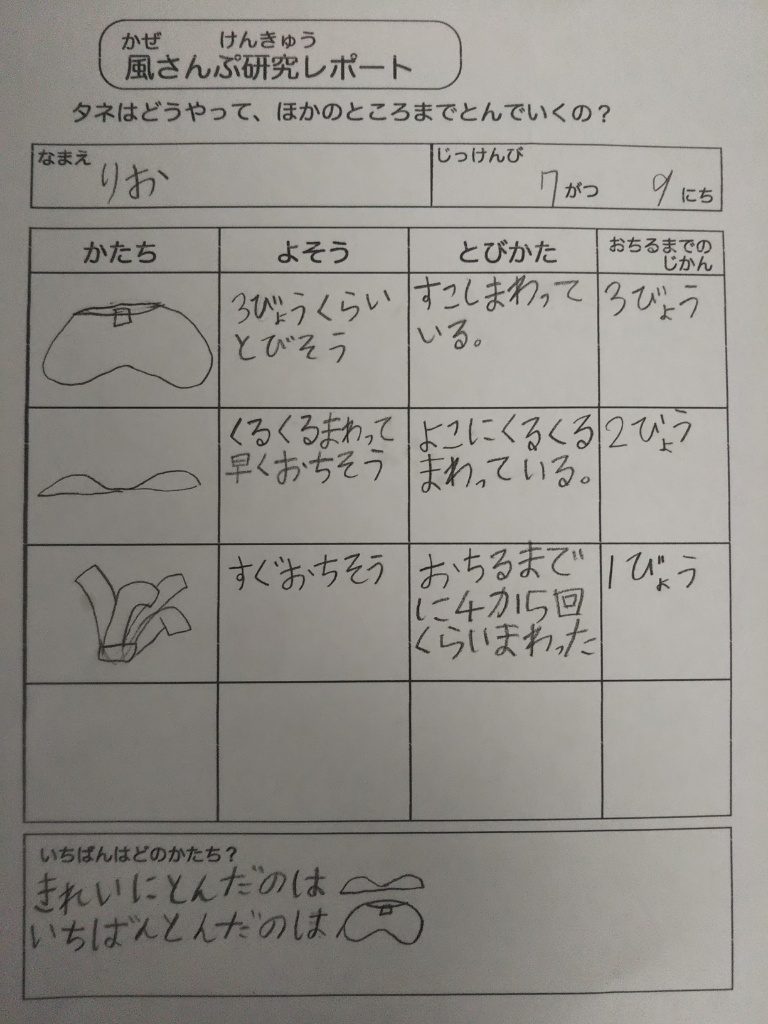 かぜ けんきゅう
風さんぷ研究レポート
タネはどうやって、ほかのところまでとんでいくの？
なまえ
りお
じっけんび
7がつ 9にち
かたち
よそう
とびかた
おちるまでの
じかん
3びょうくらい
とびそう
すこしまわって
いる。
3びょう
くるくるまわって
早くおちそう
よこにくるくる
まわっている。
2びょう
すぐおちそう
おちるまで
に4か5回
くらいまわった
1びょう
いちばんはどのかたち？
きれいにとんだのは
いちばんとんだのは